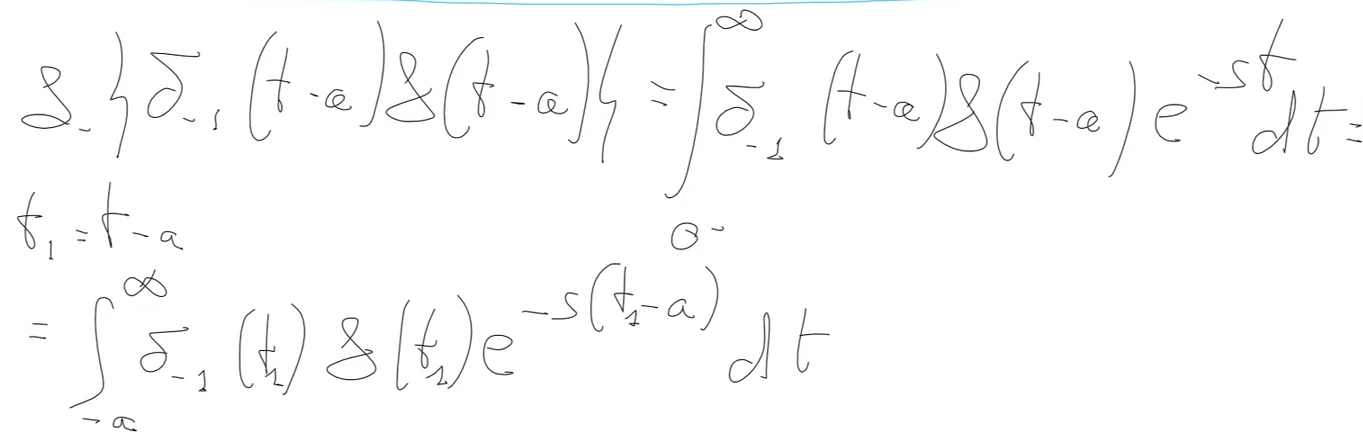 ℒ₋{δ₋₁(t-a)f(t-a)} = ∫_{0⁻}^{∞} δ₋₁(t-a)f(t-a)e^{-st}dt =
t₁ = t-a
= ∫_{-a}^{∞} δ₋₁(t₁)f(t₁)e^{-s(t₁-a)}dt